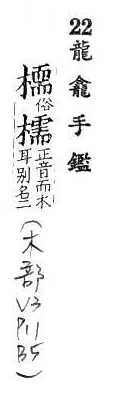 22 龍龕手鑑
俗檽正音而木耳别名二
(木部 V3 P11 B5)